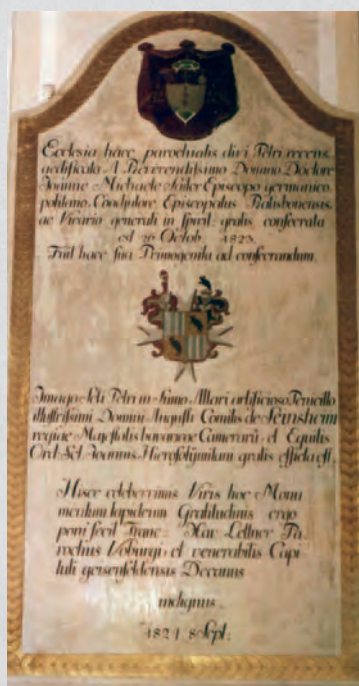 Ecclesia haec parochialis divi Petri recens
aedificata A Reverendissimo Domino Doctore
Joanne Michaele Sailer Episcopo germanico
politano, Coadjutore Episcopatus Ratisbonensis
ac Vicario generali in spirit: gratis consecrata
est 26 Octob. 1823.
Fuit haec sua Primogenita ad consecrandum.
Imago Scti Petri in Sumo Altari artificioso Penicillo
illustrissimi Domini Augusti Comitis de Seinsheim
regiae Majestatis bavaricae Camerarii, et Equitis
Ord: Sct Joannis Hierosolymitani gratis effecta est.
Hisce celeberrimis Viris hoc Monu
mentum lapideum Gratitudinis ergo
poni fecit Franc: Xav Lettner Pa
rochus Voburgi, et venerabilis Capi
tuli geisenfeldensis Decanus
indignus.
1824 8 Sept: